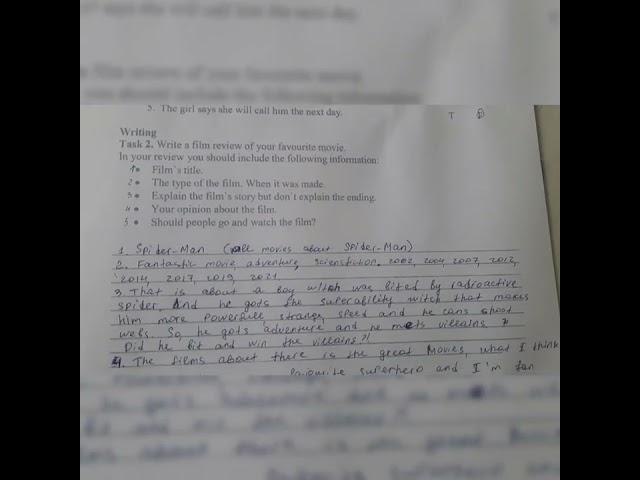 5. The girl says she will call him the next day.
T
Writing
Task 2. Write a film review of your favourite movie.
In your review you should include the following information:
1 • Film's title.
2 • The type of the film. When it was made.
3 • Explain the film's story but don't explain the ending.
4 • Your opinion about the film.
5 • Should people go and watch the film?
1. Spider-Man (all movies about Spider-Man)
2. Fantastic movie, adventure, sciensfiction. 2002, 2004, 2007, 2012,
2014, 2017, 2019, 2021
3. That is about a boy was bited by radioactive
spider. And he gots the superability witch that makes
him more powerfull strange, speed and he cans shoot
webs. So, he gots adventure and he meets villains.
Did he bit and win the villains?!
4. The films about there is the great movies, what I think
superhero and I'm fan